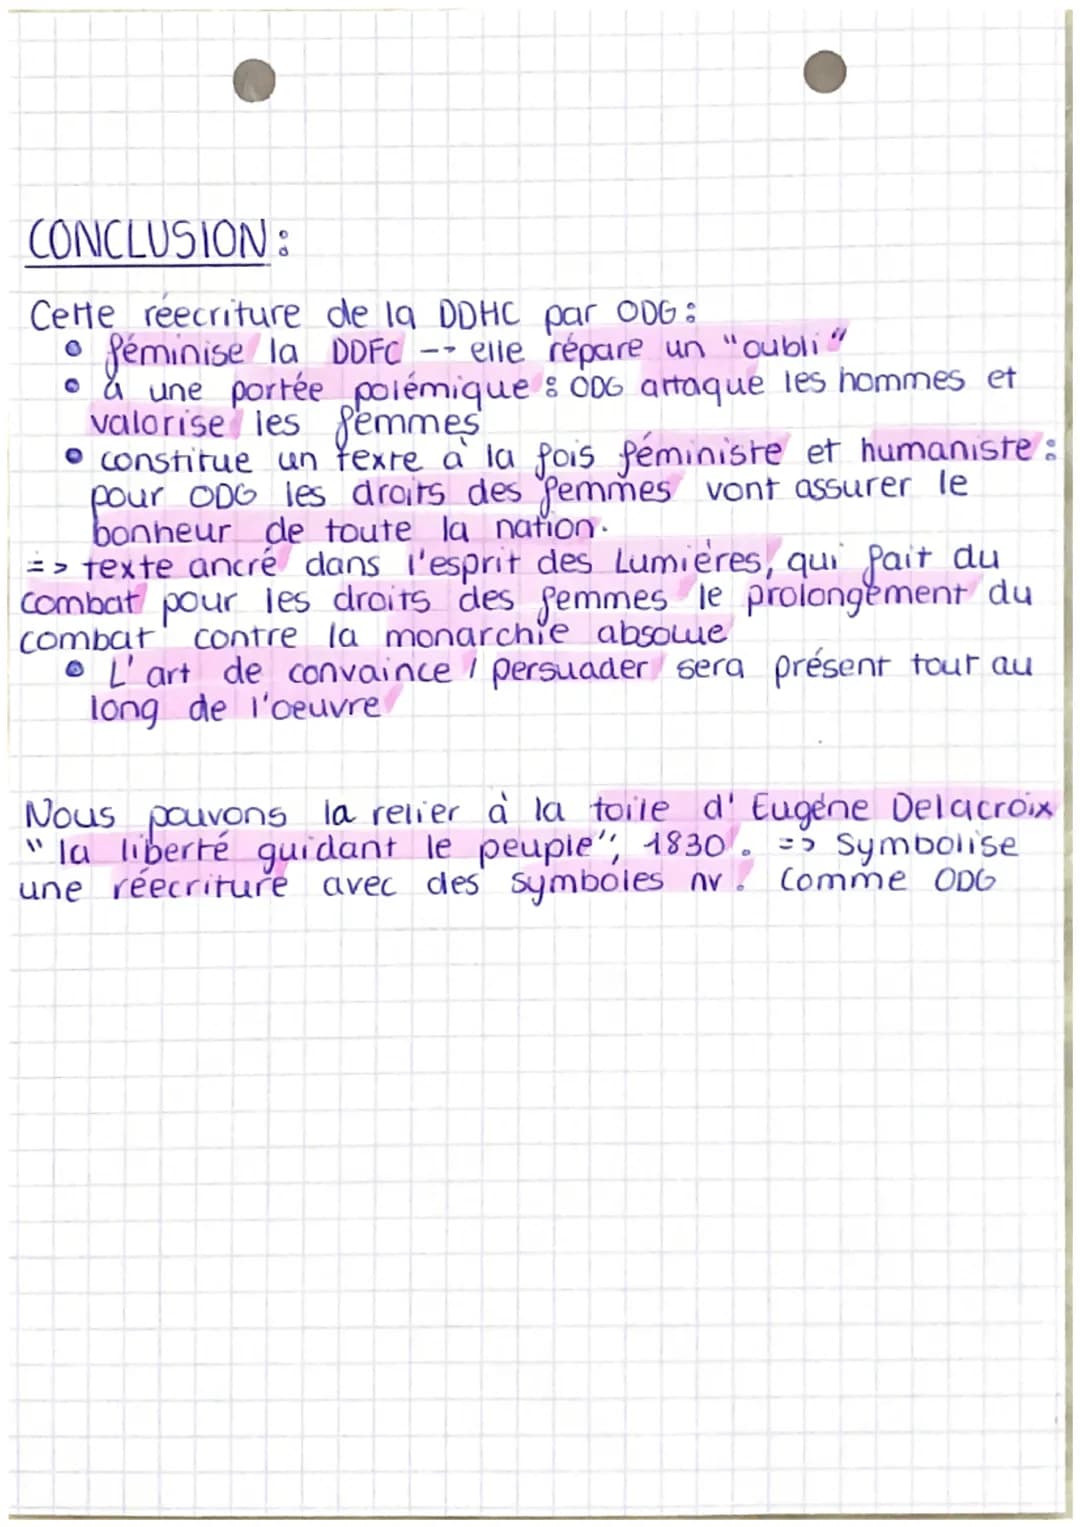 CONCLUSION :
Cette réecriture de la DDHC par ODG :
• féminise la DDFC --> elle répare un "oubli"
• a une portée polémique : ODG attaque les hommes et
valorise les femmes
• constitue un texte à la fois féministe et humaniste :
pour ODG les droits des femmes vont assurer le
bonheur de toute la nation.
=> texte ancré dans l'esprit des Lumières, qui fait du
combat pour les droits des femmes le prolongement du
combat contre la monarchie absolue
• L'art de convaince / persuader sera présent tout au
long de l'oeuvre
Nous pouvons la relier à la toile d'Eugène Delacroix
"la liberté guidant le peuple", 1830. => Symbolise
une réecriture avec des symboles nv. Comme ODG